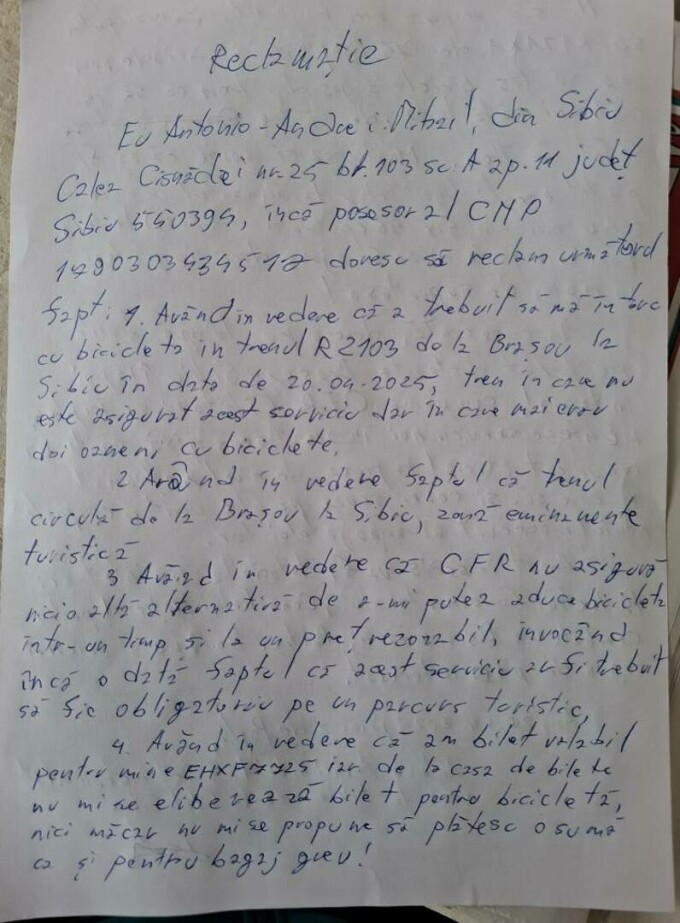 Reclamație
Eu Antonio-Andrei Mihail, din Sibiu
Calea Cisnădiei nr. 25 bl. 103 sc. A ap. 11 județ
Sibiu 550394, încă posesor al CNP
doresc să reclam următorul
fapt: 1. Având în vedere că a trebuit să mă întorc
cu bicicleta in trenul R2103 de la Brașov la
Sibiu în data de 20.04.2025, tren in care nu
este asigurat acest serviciu dar în care mai erau
doi oameni cu biciclete.
2 Având in vedere faptul că trenul
circulă de la Brașov la Sibiu, zonă eminamente
turistică
3 Având in vedere că CFR nu asigură
nicio altă alternativă de a-mi putea aduce bicicleta
într-un timp și la un preț rezonabil, invocând
încă o dată faptul că acest serviciu ar fi trebuit
să fie obligatoriu pe un parcurs turistic,
4. Având în vedere că am bilet valabil
pentru mine EHXF7725 iar de la casa de bilete
nu mi se eliberează bilet pentru bicicletă,
nici măcar nu mi se propune să plătesc o sumă
ca și pentru bagaj greu!